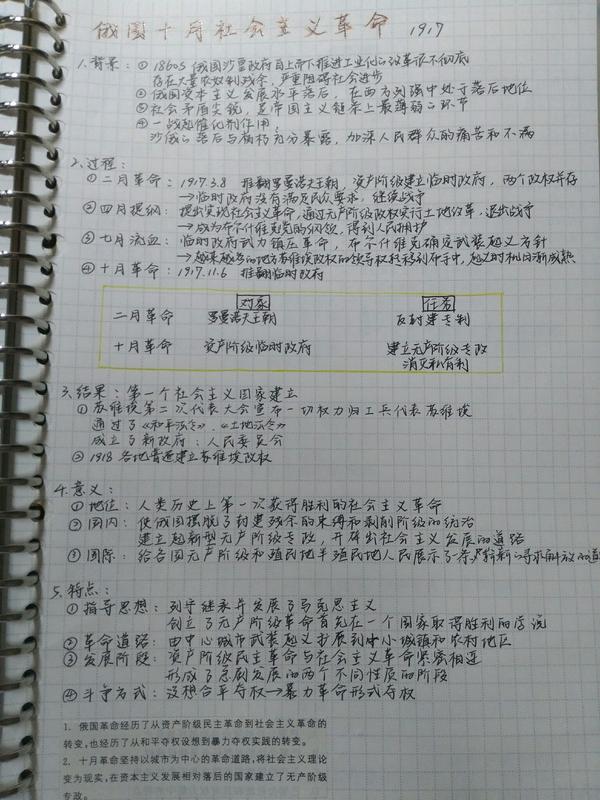 俄国十月社会主义革命 1917
1.背景：① 1860s 俄国沙皇政府自上而下推进工业化的改革很不彻底
存在大量农奴制残余，严重阻碍社会进步
② 俄国资本主义发展水平落后，在西方列强中处于落后地位
③ 社会矛盾尖锐，是帝国主义链条上最薄弱的环节
④ 一战起催化剂作用：
沙俄的落后与腐朽充分暴露，加深人民群众的痛苦和不满
2.过程：
① 二月革命：1917.3.8 推翻罗曼诺夫王朝，资产阶级建立临时政府，两个政权并存
→临时政府没有满足民众要求，继续战争
② 四月提纲：提出实现社会主义革命，通过无产阶级政权实行土地改革，退出战争
→成为布尔什维克党的纲领，得到人民拥护
③ 七月流血：临时政府武力镇压革命，布尔什维克确定武装起义方针
→越来越多的地方苏维埃政权的领导权转移到布手中，起义时机日渐成熟
④ 十月革命：1917.11.6 推翻临时政府
对象 任务
二月革命 罗曼诺夫王朝 反封建专制
十月革命 资产阶级临时政府 建立无产阶级专政
消灭私有制
3.结果：第一个社会主义国家建立
① 苏维埃第二次代表大会宣布一切权力归工兵代表苏维埃
通过了《和平法令》、《土地法令》
成立了新政府：人民委员会
② 1918 各地普遍建立苏维埃政权
4.意义：
① 地位：人类历史上第一次获得胜利的社会主义革命
② 国内：使俄国摆脱了封建残余的束缚和剥削阶级的统治
建立起新型无产阶级专政，开辟出社会主义发展的道路
③ 国际：给各国无产阶级和殖民地半殖民地人民展示了一条崭新的寻求解放的道
5.特点：
① 指导思想：列宁继承并发展了马克思主义
创立了无产阶级革命首先在一个国家取得胜利的学说
② 革命道路：由中心城市武装起义扩展到中小城镇和农村地区
③ 发展阶段：资产阶级民主革命与社会主义革命紧密相连
形成了急剧发展的两个不同性质的阶段
④ 斗争方式：设想和平夺权→暴力革命形式夺权
1. 俄国革命经历了从资产阶级民主革命到社会主义革命的
转变，也经历了从和平夺权设想到暴力夺权实践的转变。
2. 十月革命坚持以城市为中心的革命道路，将社会主义理论
变为现实，在资本主义发展相对落后的国家建立了无产阶级
专政。